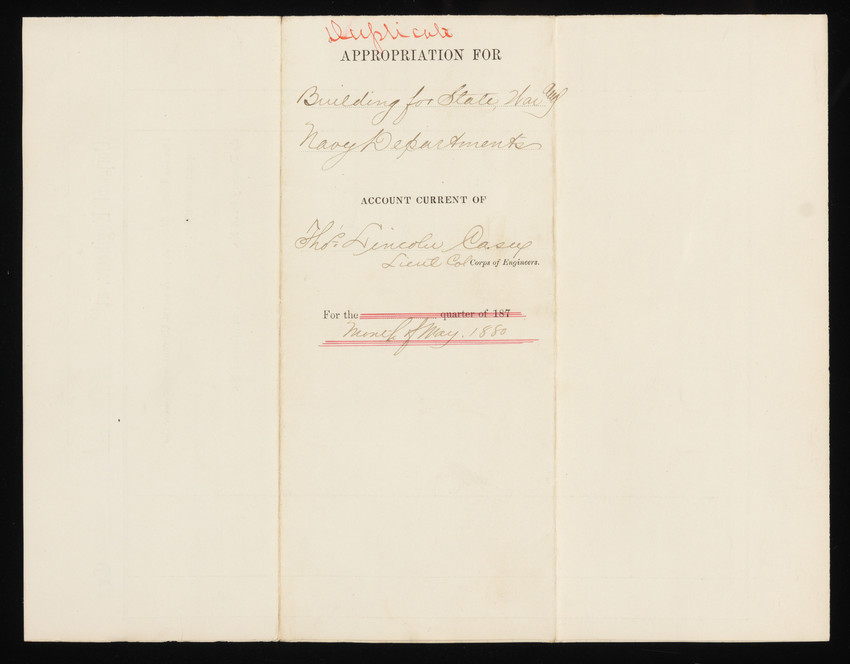 Duplicate
APPROPRIATION FOR
Building for State, War and
Navy Departments
ACCOUNT CURRENT OF
Thos Lincoln Casey
Lieut Col Corps of Engineers.
For the quarter of 187
Month of May. 1880